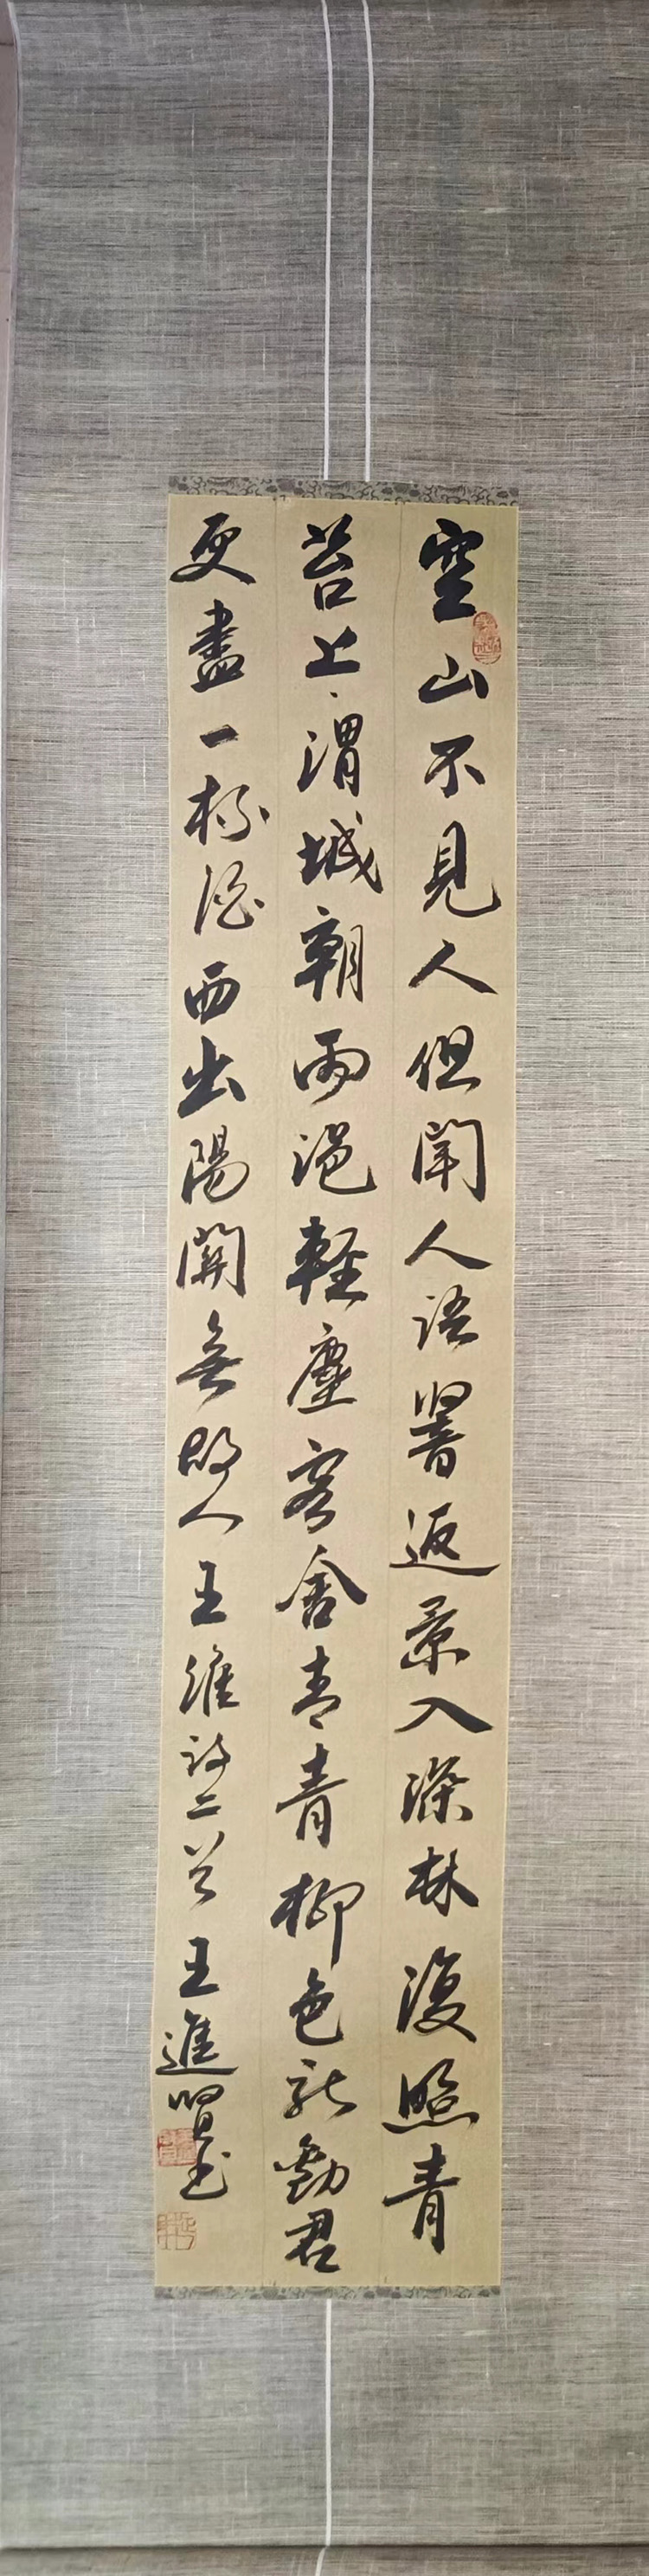 空山不見人但聞人語響返景入深林復照青
苔上渭城朝雨浥輕塵客舍青青柳色新勸君
更盡一杯酒西出陽關無故人王維詩二首王進賢書